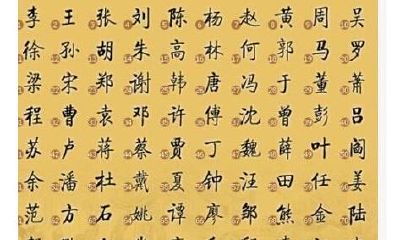 李 王 张 刘 陈 杨 赵 黄 周 吴
徐 孙 胡 朱 高 林 何 郭 马 罗
梁 宋 郑 谢 韩 唐 冯 于 董 萧
程 曹 袁 邓 许 傅 沈 曾 彭 吕
苏 卢 蒋 蔡 贾 丁 魏 薛 叶 阎
余 潘 杜 戴 夏 钟 汪 田 任 姜
范 方 石 姚 谭 廖 邹 熊 金 陆